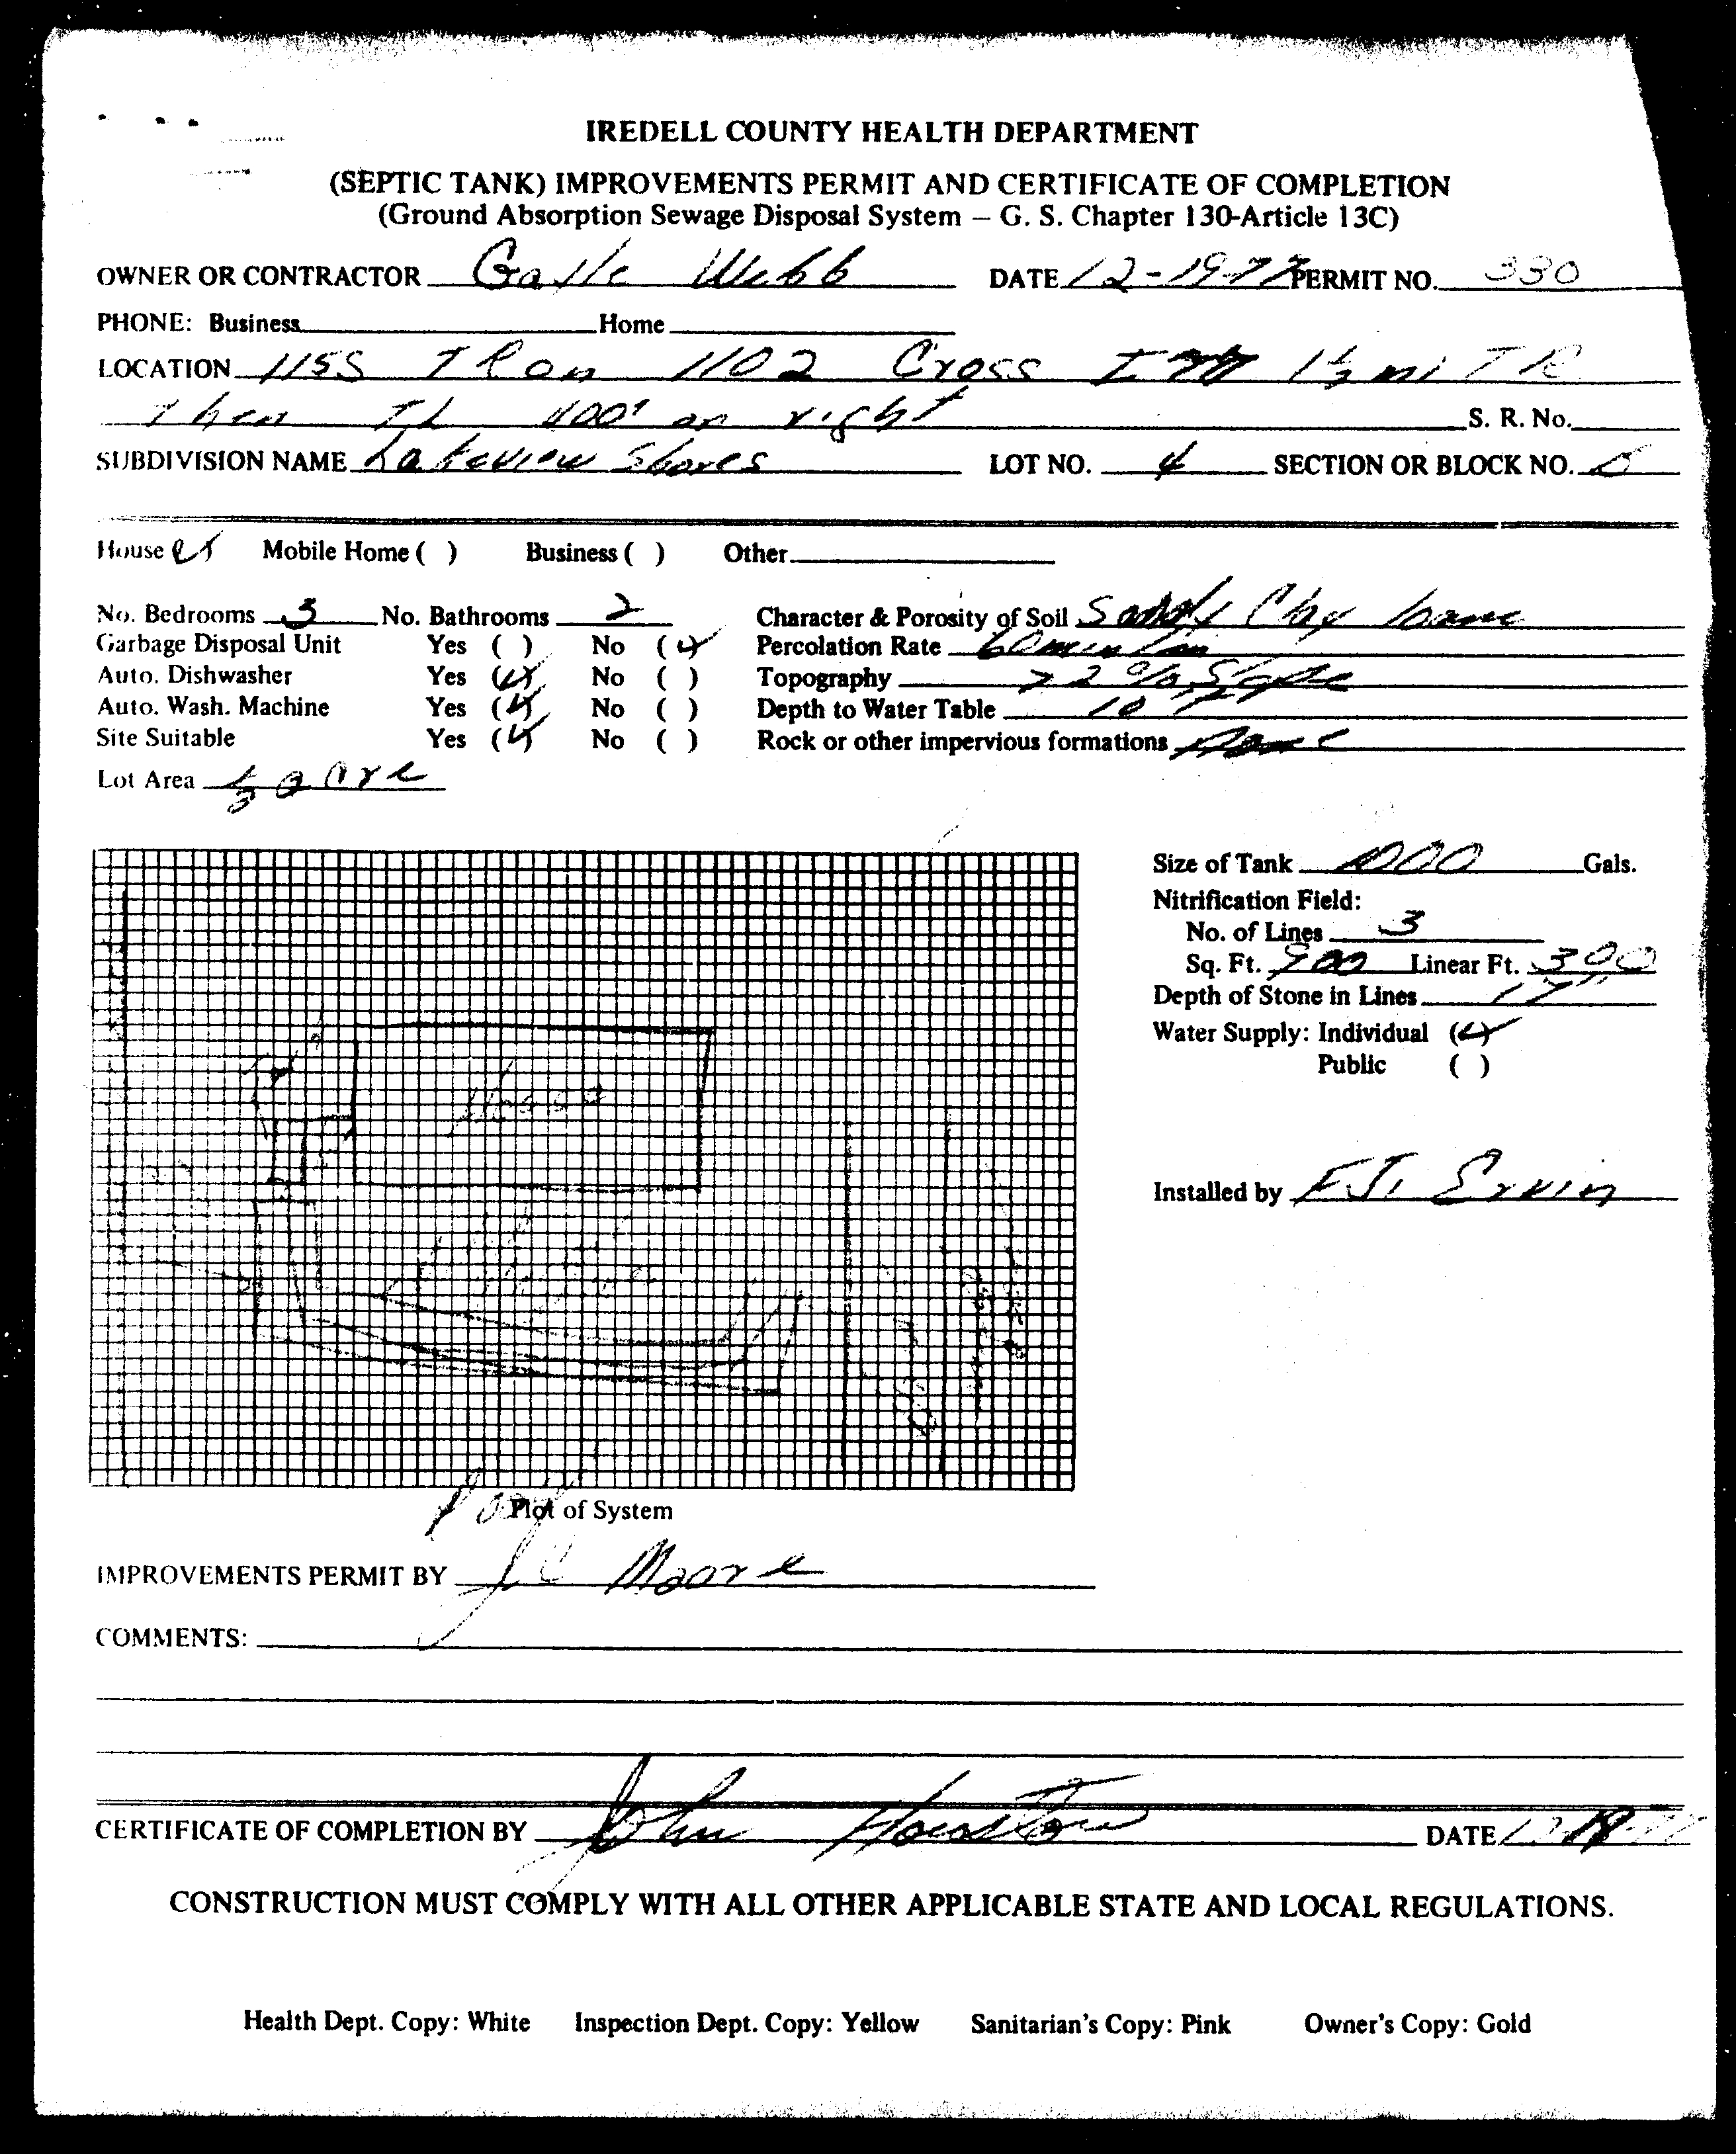 IREDELL COUNTY HEALTH DEPARTMENT
(SEPTIC TANK) IMPROVEMENTS PERMIT AND CERTIFICATE OF COMPLETION
(Ground Absorption Sewage Disposal System – G. S. Chapter 130-Article 13C)
OWNER OR CONTRACTOR Gayle Webb DATE 12-19-77 PERMIT NO. 330
PHONE: Business Home
LOCATION 115S TR on 1102 Cross I 77 1½ mi TR
Then TL 400' on right S. R. No.
SUBDIVISION NAME Lakeview Shores LOT NO. 4 SECTION OR BLOCK NO.
House (✓) Mobile Home ( ) Business ( ) Other
No. Bedrooms 3 No. Bathrooms 2 Character & Porosity of Soil Sandy Clay loam
Garbage Disposal Unit Yes ( ) No (✓) Percolation Rate 60 min/in
Auto. Dishwasher Yes (✓) No ( ) Topography >2% Slope
Auto. Wash. Machine Yes (✓) No ( ) Depth to Water Table 10 FT
Site Suitable Yes (✓) No ( ) Rock or other impervious formations None
Lot Area ½ acre
Size of Tank 1000 Gals.
Nitrification Field:
No. of Lines 3
Sq. Ft. 900 Linear Ft. 300
Depth of Stone in Lines
Water Supply: Individual (✓)
Public ( )
House
Installed by F.J. Ervin
Road
Plot of System
IMPROVEMENTS PERMIT BY J C Moore
COMMENTS:
CERTIFICATE OF COMPLETION BY John Houston DATE 12-19-77
CONSTRUCTION MUST COMPLY WITH ALL OTHER APPLICABLE STATE AND LOCAL REGULATIONS.
Health Dept. Copy: White Inspection Dept. Copy: Yellow Sanitarian's Copy: Pink Owner's Copy: Gold